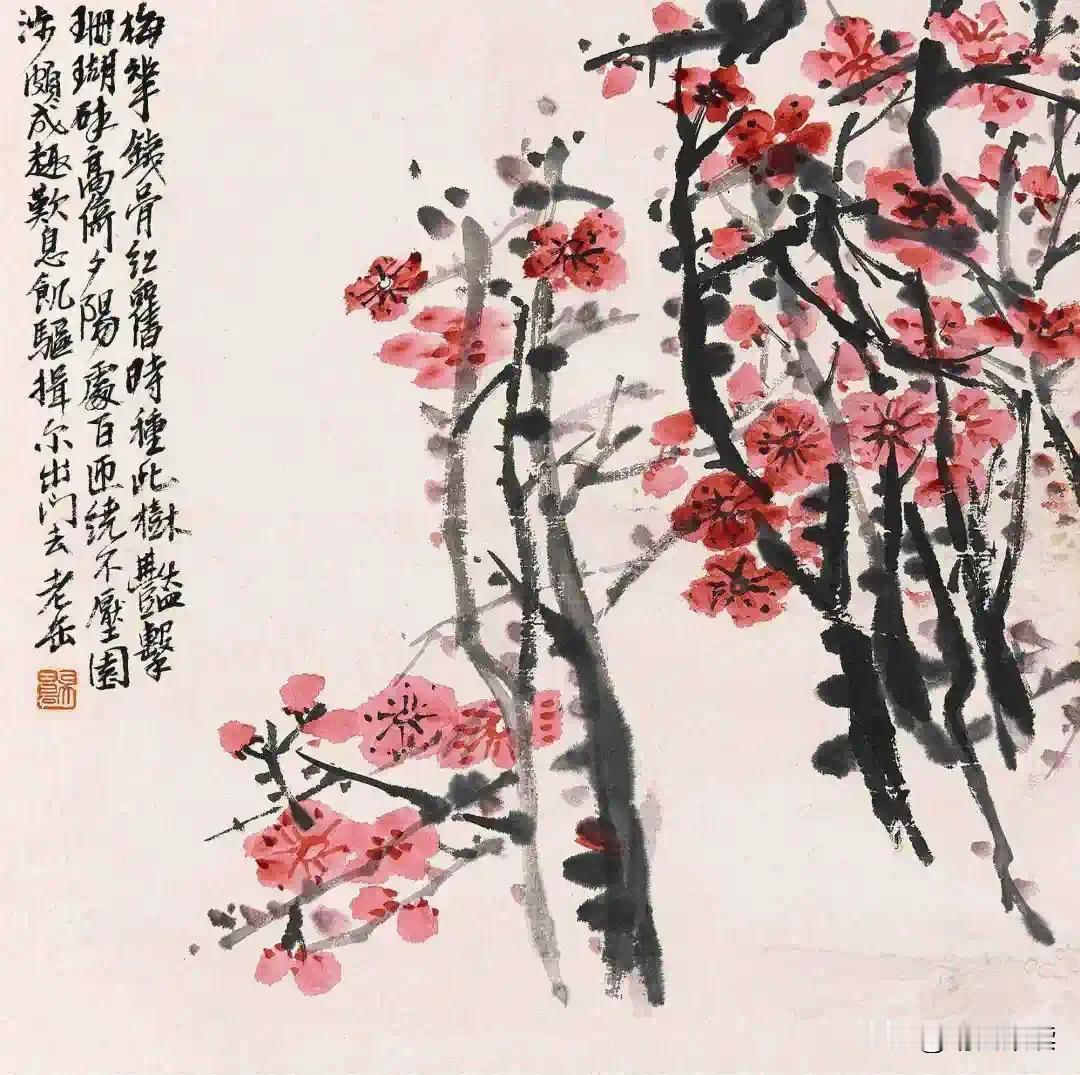 梅華鐵骨紅舊時種此樹豔擊
珊瑚碎高倚夕陽處百匝繞不厭園
涉頗成趣歎息飢驅揖尔出門去 老缶